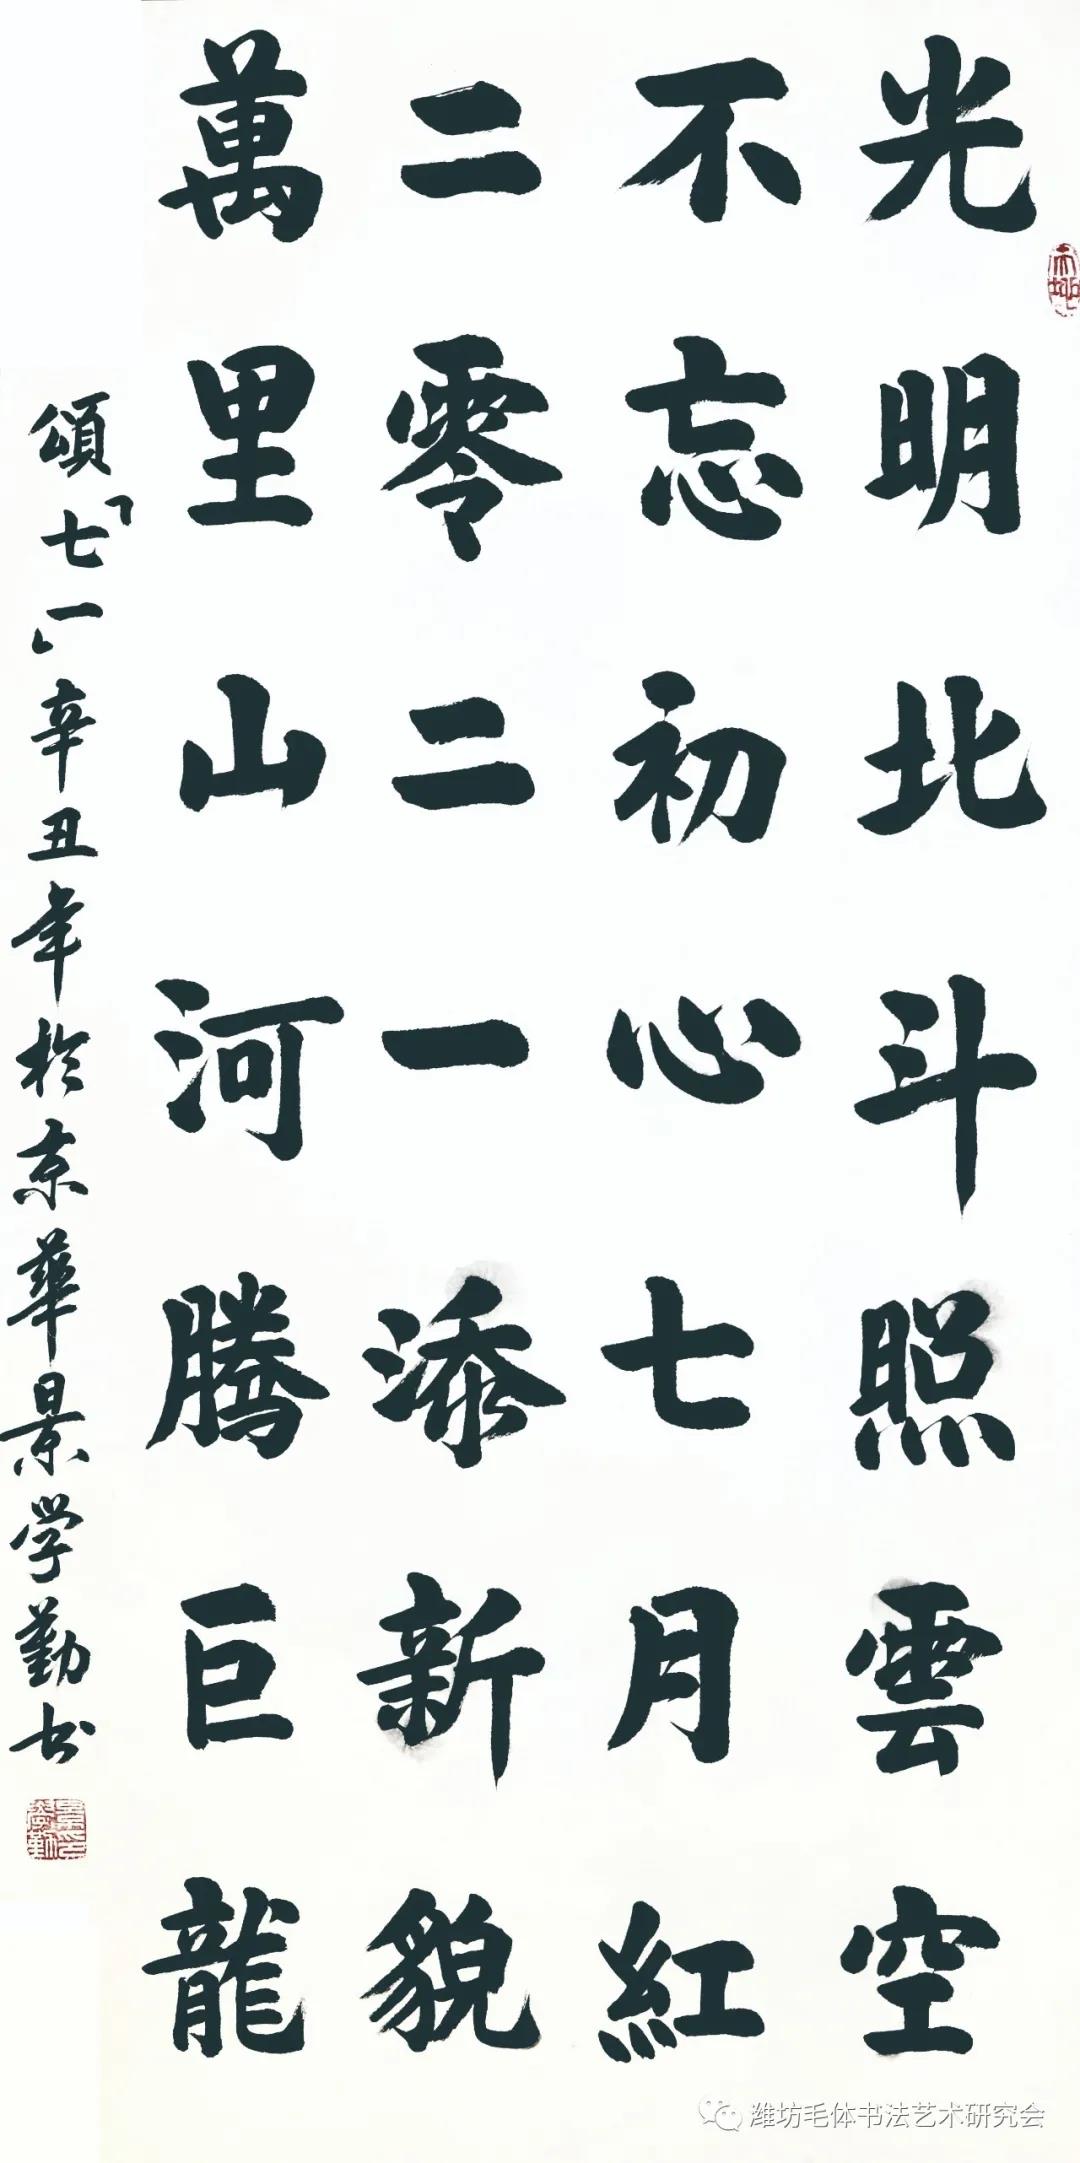 光明北斗照雲空
不忘初心七月紅
二零二一添新貌
萬里山河腾巨龍
頌「七一」辛丑年於东華景学勤书
潍坊毛体书法艺术研究会